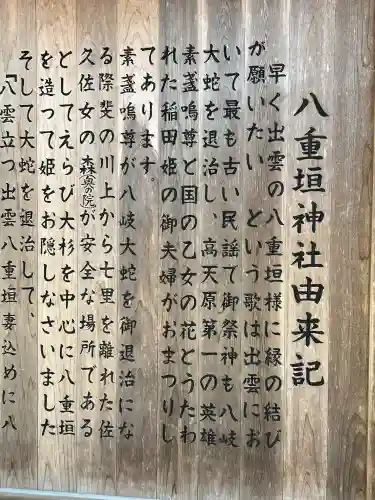 八重垣神社由来記
早く出雲の八重垣様に縁の結び
が願いたい という歌は出雲にお
いて最も古い民謡で御祭神も八岐
大蛇を退治し、高天原第一の英雄
素盞嗚尊と国の乙女の花とうたわ
れた稲田姫の御夫婦がおまつりし
てあります。
素盞嗚尊が八岐大蛇を御退治にな
る際斐の川上から七里を離れた佐
久佐女の森(奥の院)が安全な場所である
としてえらび大杉を中心に八重垣
を造って姫をお隠しなさいました
そして大蛇を退治して、
「八雲立つ出雲八重垣妻込めに八